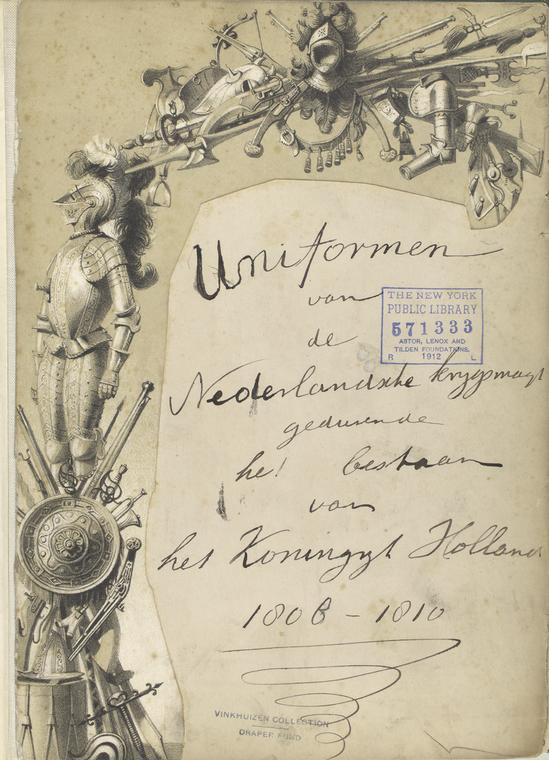 Uniformen
van
de
Nederlandsche krygsmagt
gedurende
het bestaan
van
het Koningryk Holland
1806 - 1810
THE NEW YORK
PUBLIC LIBRARY
571333
ASTOR, LENOX AND
TILDEN FOUNDATIONS.
R 1912 L
VINKHUIZEN COLLECTION
DRAPER FUND